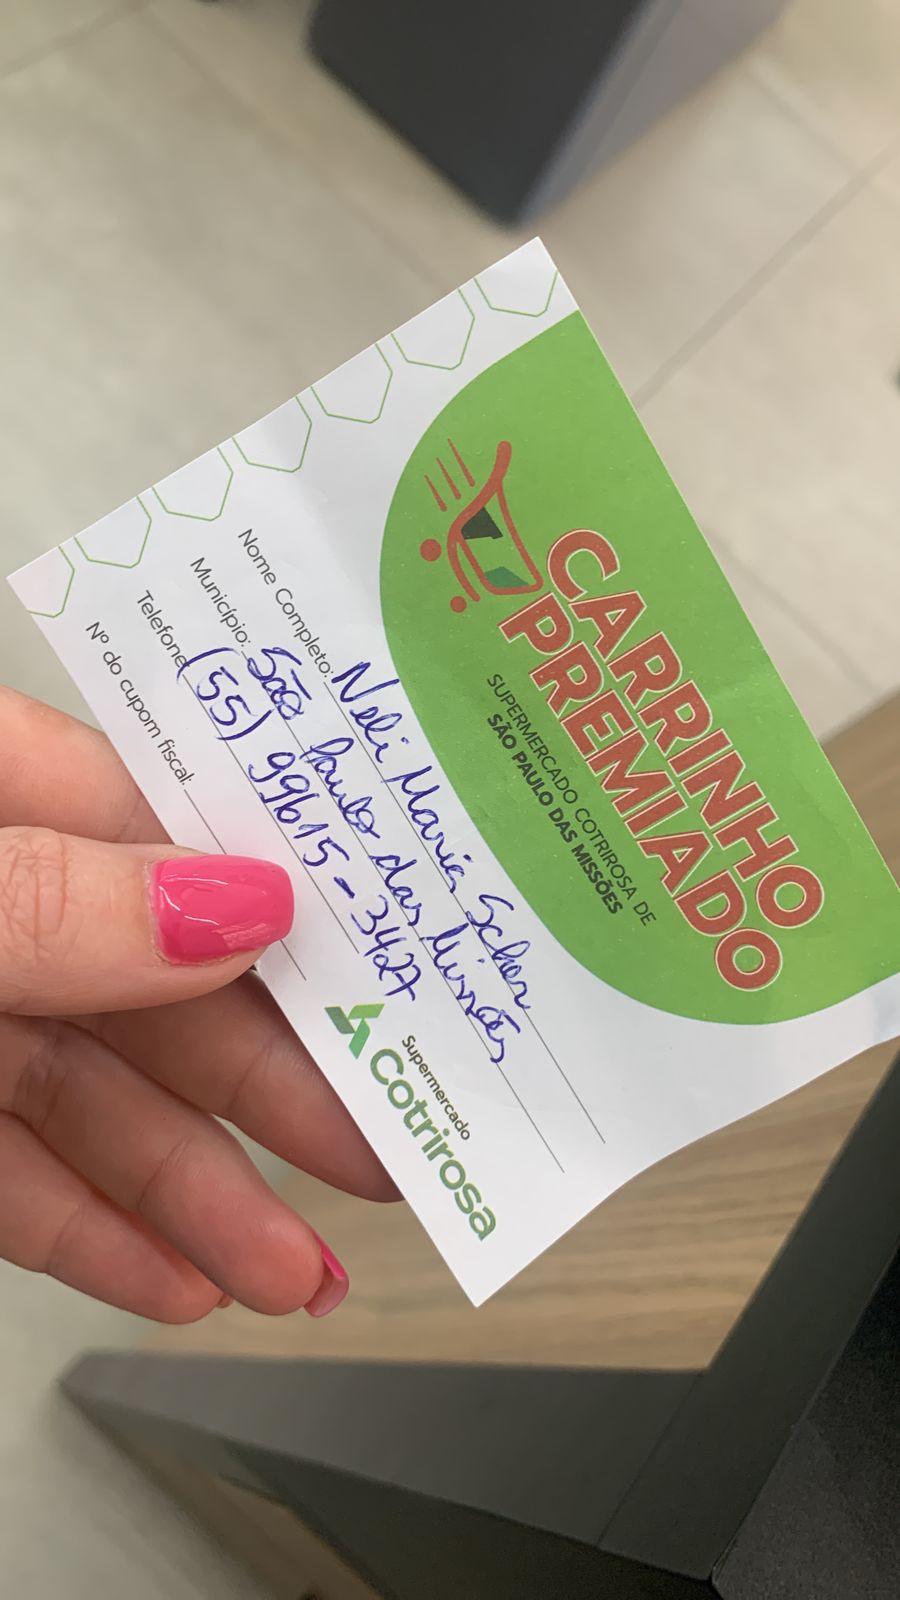 CARRINHO
PREMIADO
SUPERMERCADO COTRIROSA DE
SÃO PAULO DAS MISSÕES
Nome Completo: Neli Maria Scher
Município: São Paulo das Missões
Telefone (55) 99615-3427
Nº do cupom fiscal:
Supermercado
cotrirosa